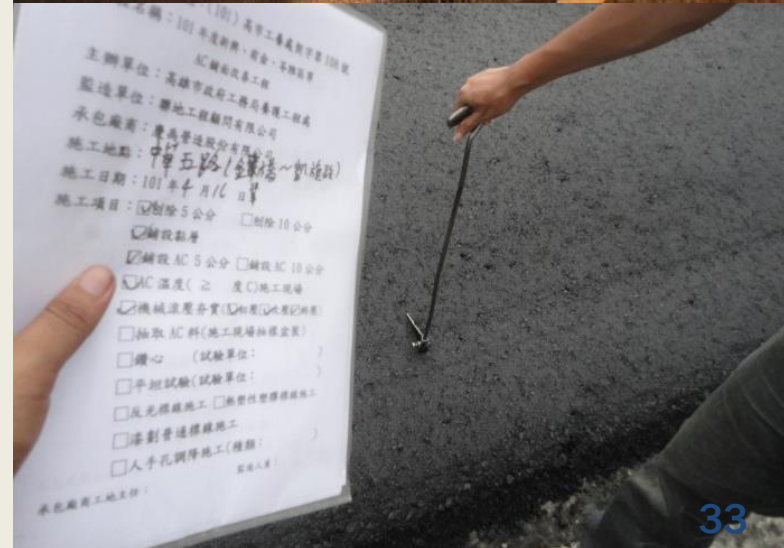 (101)高市工養處契字第108號
名稱：101年度新興、前金、苓雅區等
AC鋪面改善工程
主辦單位：高雄市政府工務局養護工程處
監造單位：聯地工程顧問有限公司
承包廠商：營造股份有限公司
施工地點：中華五路(~凱旋路)
施工日期：101年4月16日
施工項目：☑刨除5公分 □刨除10公分
☑鋪設黏層
☑鋪設AC 5公分 □鋪設AC 10公分
☑AC溫度(≥ 度C)施工現場
☑機械滾壓夯實(☑初壓☑次壓☑終壓)
□抽取AC料(施工現場抽樣盒裝)
□鑽心 (試驗單位： )
□平坦試驗(試驗單位： )
□反光標線施工 □熱塑性塑膠標線施工
□漆劃普通標線施工
□人手孔調降施工(種類： )
監造人員：
承包廠商工地主任：
33